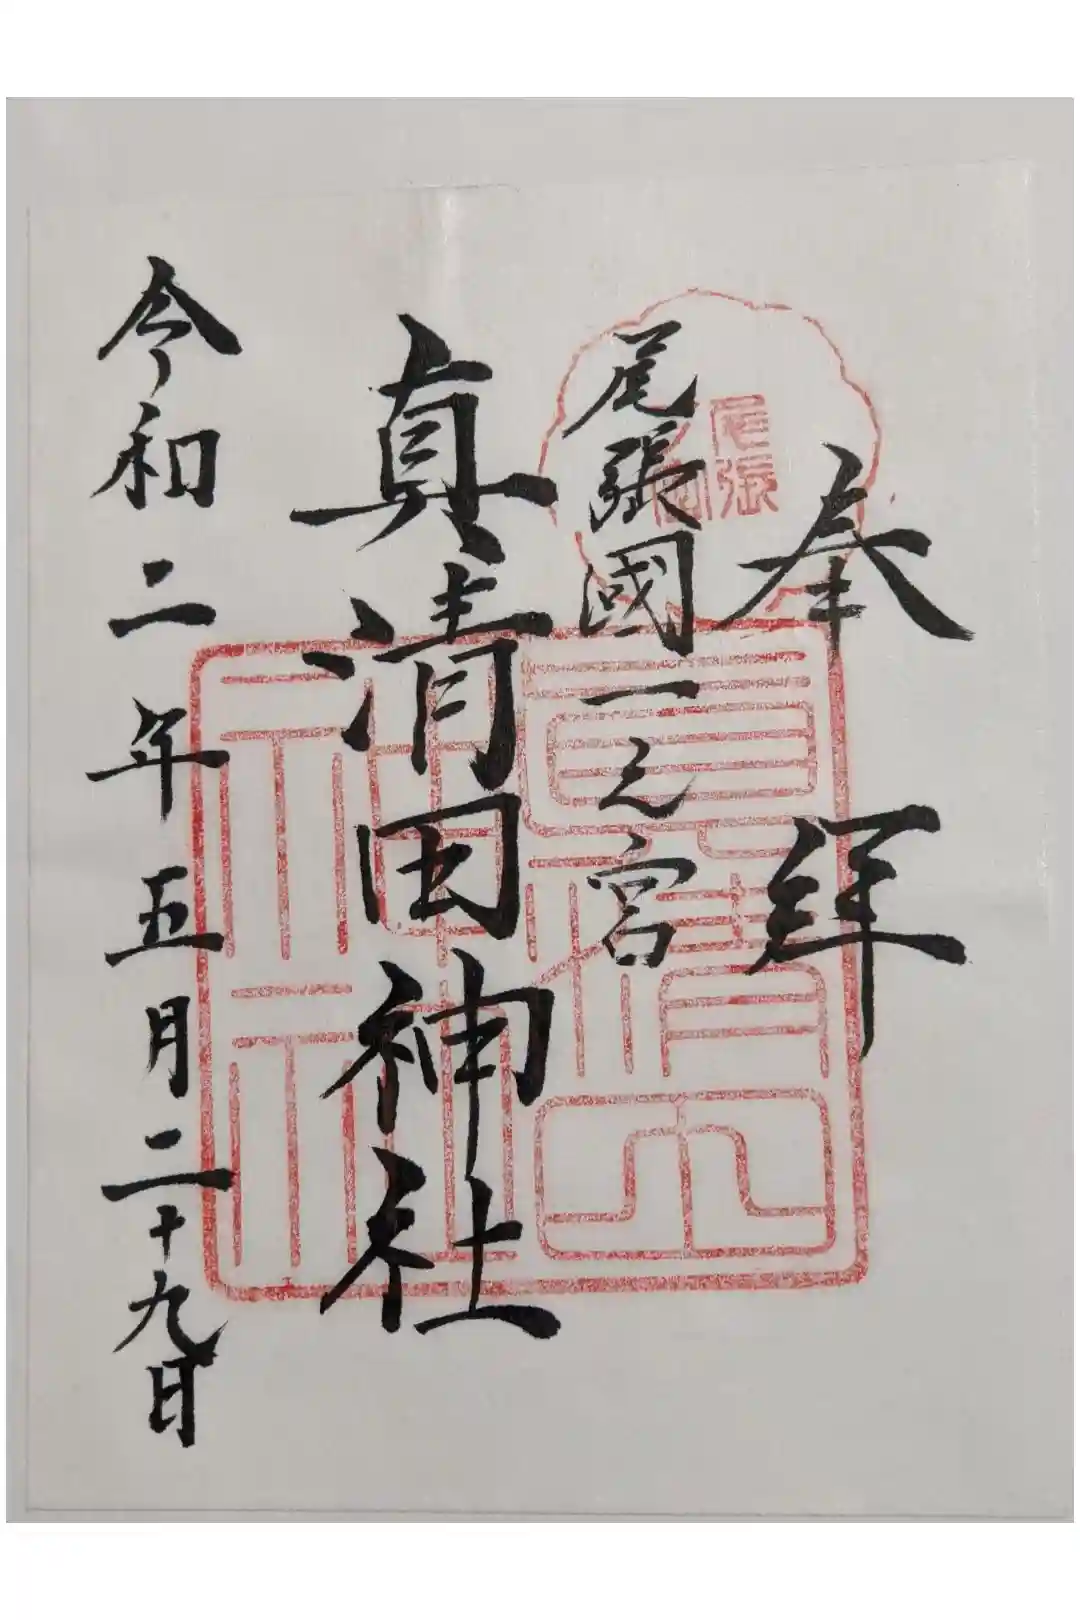 奉拜
尾張國一之宮
真清田神社
令和二年五月二十九日
尾張
真清田
神社